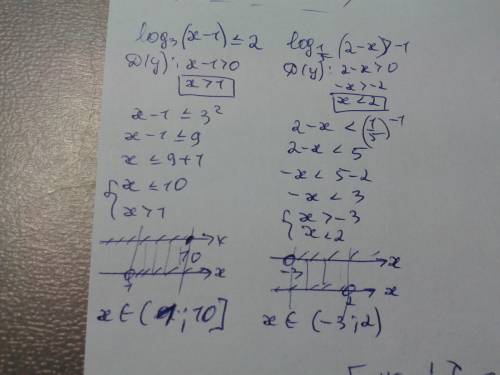 log₃(x-1) ≤ 2
D(y): x-1>0
x>1
x-1 ≤ 3²
x-1 ≤ 9
x ≤ 9+1
{ x ≤ 10
x>1
x
10
x
1
x ∈ (1; 10]
log 1/5 (2-x) > -1
D(y): 2-x>0
-x>-2
x<2
2-x < (1/5)⁻¹
2-x < 5
-x < 5-2
-x < 3
{ x>-3
x<2
x
-3
x
2
x ∈ (-3; 2)